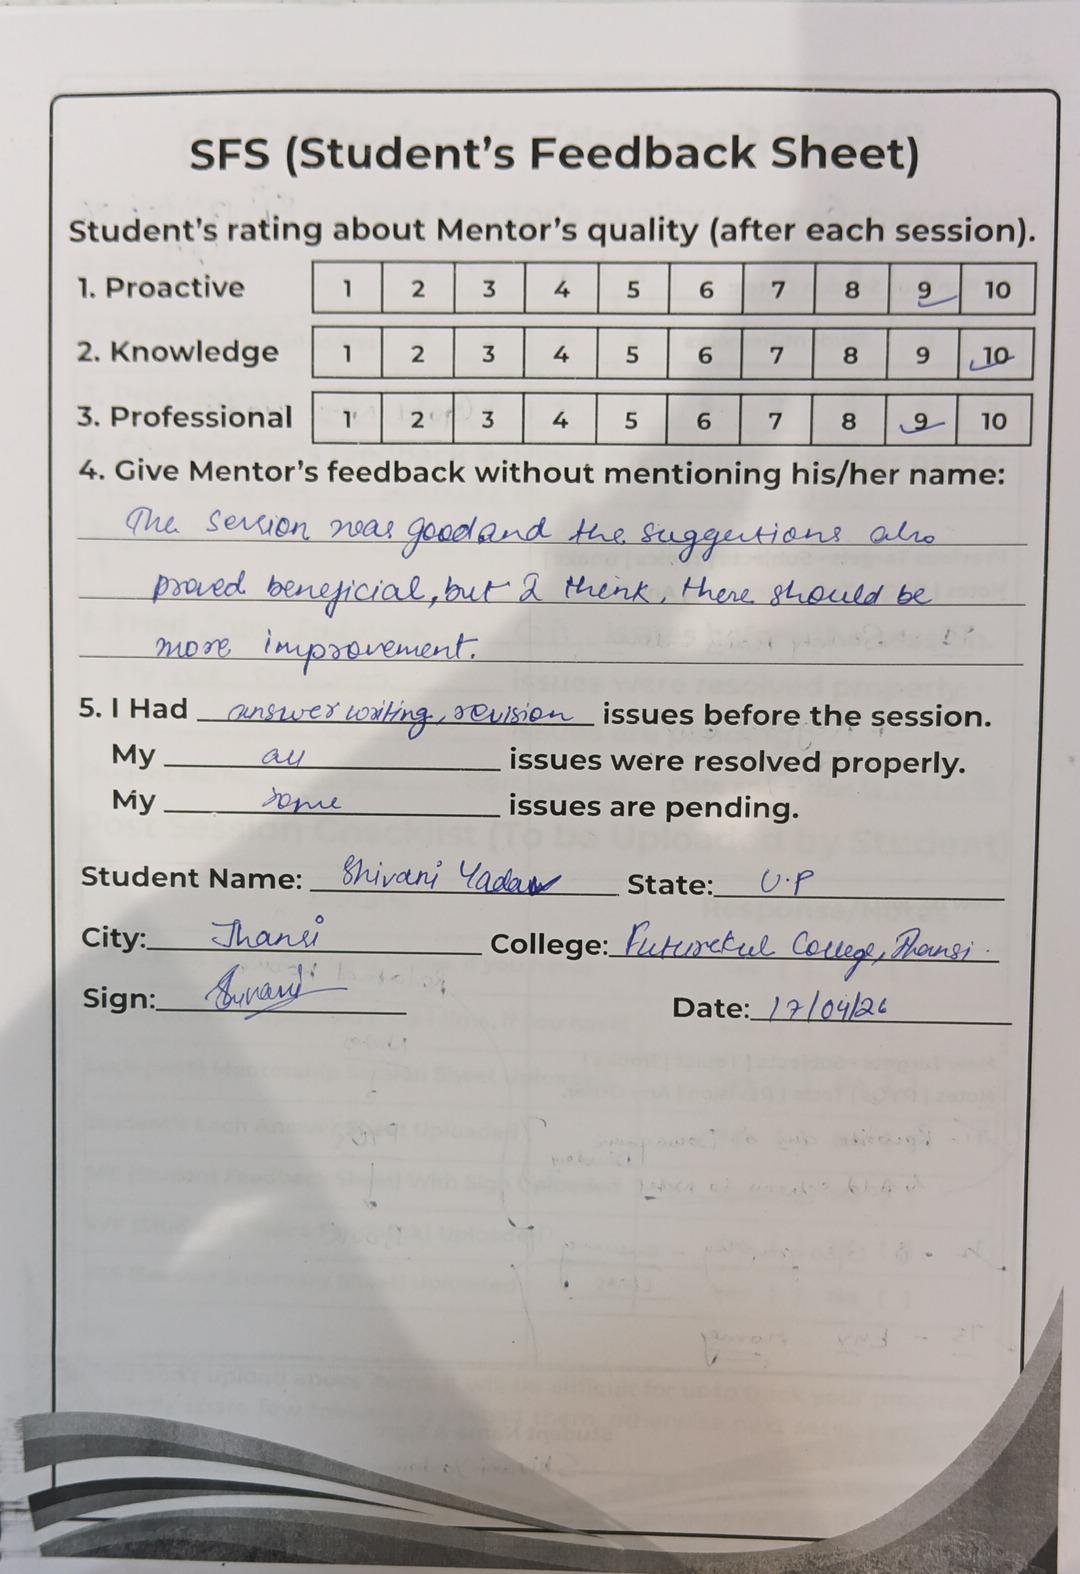 SFS (Student's Feedback Sheet)
Student's rating about Mentor's quality (after each session).
1. Proactive 1 2 3 4 5 6 7 8 9 10
2. Knowledge 1 2 3 4 5 6 7 8 9 10
3. Professional 1 2 3 4 5 6 7 8 9 10
4. Give Mentor's feedback without mentioning his/her name:
The session was good and the suggestions also
proved beneficial, but I think, there should be
more improvement.
5. I Had answer writing, revision issues before the session.
My all issues were resolved properly.
My some issues are pending.
Student Name: Shivani Yadav State: U.P
City: Jhansi College: Futurekul College, Jhansi.
Sign: Shivani Date: 17/04/26